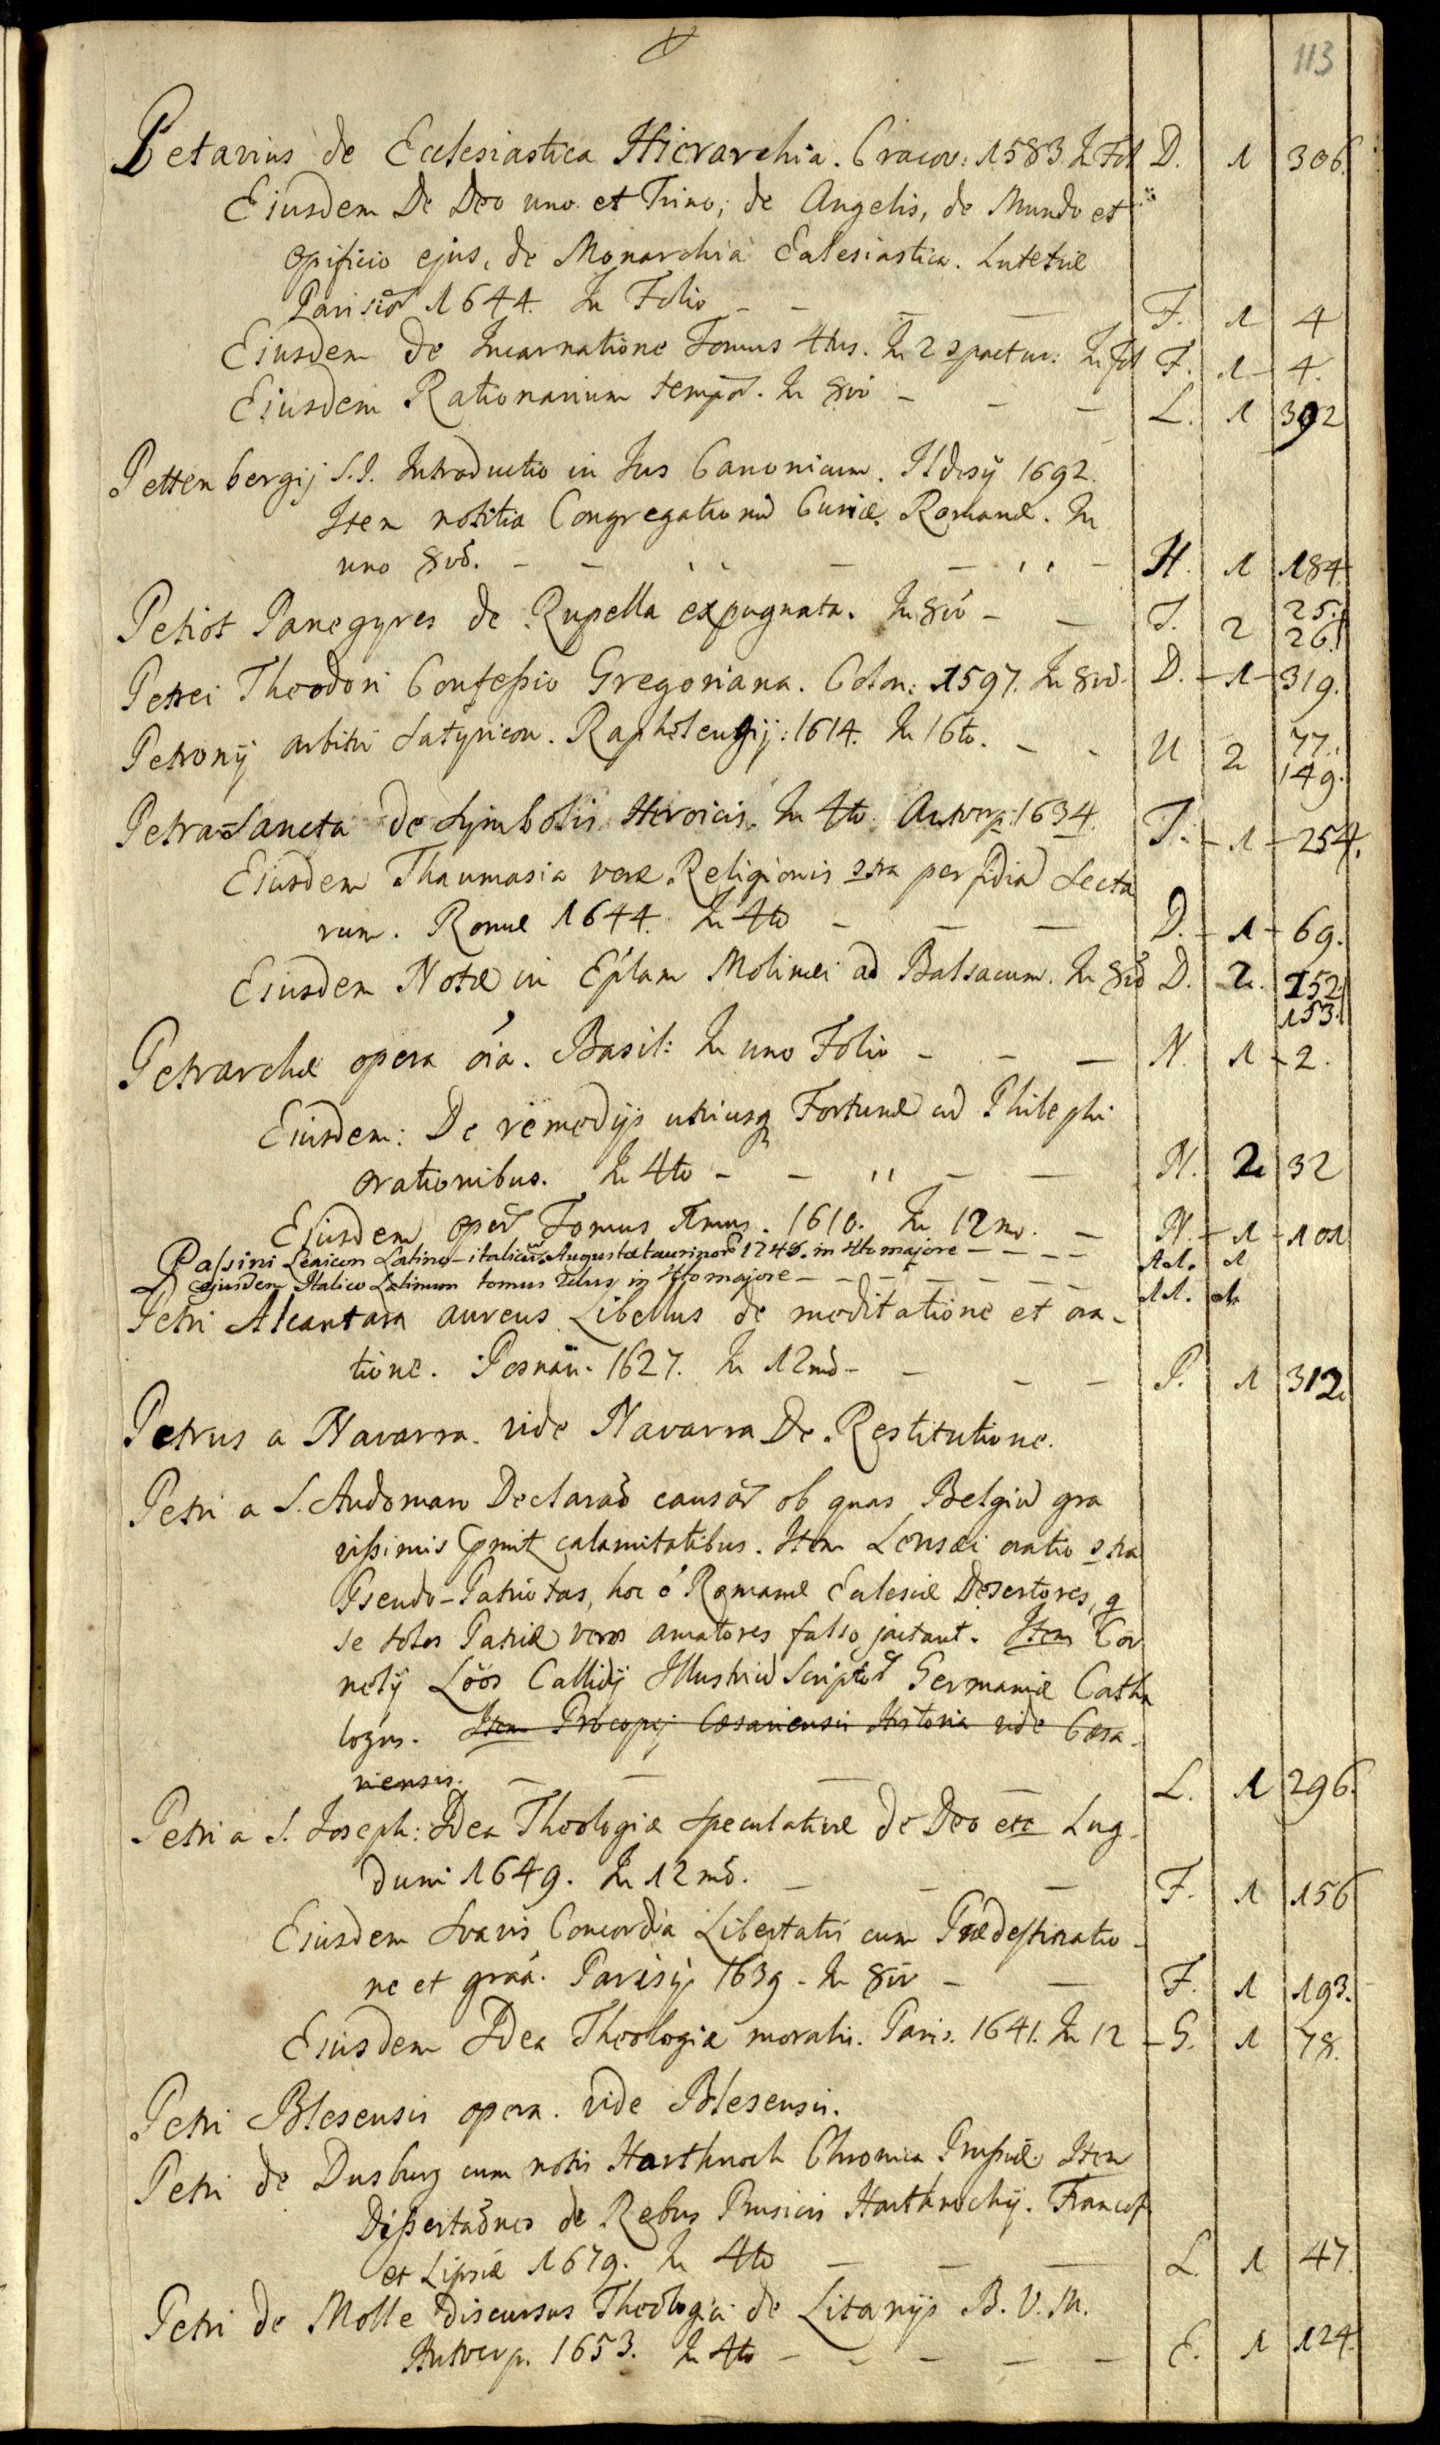 113
Petavius de Ecclesiastica Hierarchia. Cracov: 1583 In Fol D. 1 306.
Eiusdem De Deo uno et Trino, de Angelis, de Mundo et
opificio ejus, de Monarchia Ecclesiastica. Lutetiæ
Parisior 1644. In Folio - - - - F. 1 4
Eiusdem De Incarnatione Tomus 4tus. In 2 In Fol F. 1 - 4.
Eiusdem Rationarium tempor. In 8vo - - - L. 1 392
Pettenbergij S.J. Introductio in Jus Canonicum. Ildesij 1692.
Item notitia Congregationu Curiæ Romanæ. In
uno 8vo. - - - - - H. 1 184
Petiot Panegyres de Rupella expugnata. In 8vo - - T. 2 25.
26.
Petrei Theodori Confessio Gregoriana. Colon: 1597. In 8vo. D. - 1 - 319.
Petronij arbitri Satyricon. Raphelengij: 1614. In 16to. - - U 2 77.
149.
Petra-Sancta de Symbolis Heroicis. In 4to. Antverp: 1634. T. - 1 - 254.
Eiusdem Thaumasia veræ Religionis perfidia Secta
rum. Romæ 1644. In 4to - - - D. - 1 - 69.
Eiusdem Notæ in Eplam Molinæi ad Balsacum. In 8vo D. 2. 152
153.
Petrarchæ opera oia. Basil: In uno Folio - - - N. 1 - 2.
Eiusdem: De remedijs utriusq Fortunæ cu Philephi
orationibus. In 4to - - - - - N. 2 32
Eiusdem oper Tomus 1mus. 1610. In 12mo. - N. - 1 - 101
Passini Lexicon Latino-italicum Augustætaurinor 1745. in 4to majore - - - - AA. 1
ejusdem Italico Latinum tomus 2dus in 4to majore - - - - - - AA. 1
Petri Alcantara aureus Libellus de meditatione et ora-
tione. Posnan. 1627. In 12mo - - - - P. 1 312
Petrus a Navarra. vide Navarra De Restitutione.
Petri a S. Audomaro Declarao causar ob quas Belgiu gra
vissimis calamitatibus. Item Lensæi oratio
Pseudo-Patriotas, hoc e Romanæ Ecclesiæ Desertores, q
se solos Patriæ veros amatores falso jactant. Item Cor
nelij Loos Callidij Illustriu Scriptor Germaniæ Catha
logus. Item Procopij Cæsariensis Historia vide Cæsa-
riensis. - - - - L. 1 296.
Petri a S. Joseph: Idea Theologiæ speculativæ de Deo etc Lug-
duni 1649. In 12mo. - - - F. 1 156
Eiusdem Suavis Concordia Libertatis cum Prædestinatio-
ne et graa. Parisijs 1639 - In 8vo - - F. 1 193.
Eiusdem Idea Theologiæ moralis. Paris. 1641. In 12 - G. 1 78.
Petri Blesensis opera. vide Blesensis.
Petri de Dusburg cum notis Harthnoch Chronica Prussiæ. Item
Dissertaones de Rebus Prusicis Harthnochij. Francof.
et Lipsiæ 1679. In 4to - - - L. 1 47
Petri de Molle Discursus Theologici de Litanijs B. V. M.
Antverp. 1653. In 4to - - - - - E. 1 124.